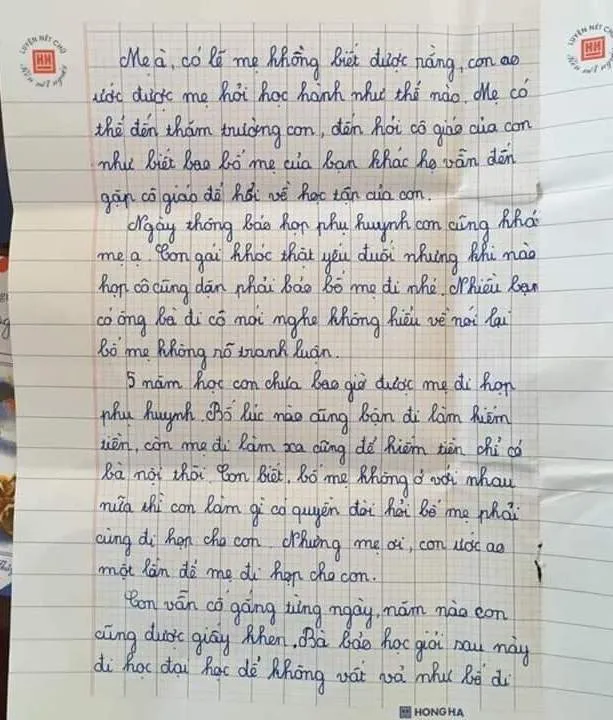 LUYỆN NÉT CHỮ
HH
LUYỆN NÉT CHỮ
HH
Mẹ à, có lẽ mẹ không biết được rằng, con ao
ước được mẹ hỏi học hành như thế nào. Mẹ có
thể đến thăm trường con, đến hỏi cô giáo của con
như biết bao bố mẹ của bạn khác họ vẫn đến
gặp cô giáo để hỏi về học tập của con.
Ngày thông báo họp phụ huynh con cũng khó
mẹ ạ. Con gái khóc thật yếu đuối nhưng khi nào
họp cô cũng dặn phải báo bố mẹ đi nhé. Nhiều bạn
có ông bà đi cô nói nghe không hiểu về nói lại
bố mẹ không rõ tranh luận.
5 năm học con chưa bao giờ được mẹ đi họp
phụ huynh. Bố lúc nào cũng bận đi làm kiếm
tiền, còn mẹ đi làm xa cũng để kiếm tiền chỉ có
bà nội thôi. Con biết, bố mẹ không ở với nhau
nữa thì con làm gì có quyền đòi hỏi bố mẹ phải
cùng đi họp cho con. Nhưng mẹ ơi, con ước ao
một lần để mẹ đi họp cho con.
Con vẫn cố gắng từng ngày, năm nào con
cũng được giấy khen. Bà bảo học giỏi sau này
đi học đại học để không vất vả như bố đi
HH HONG HA